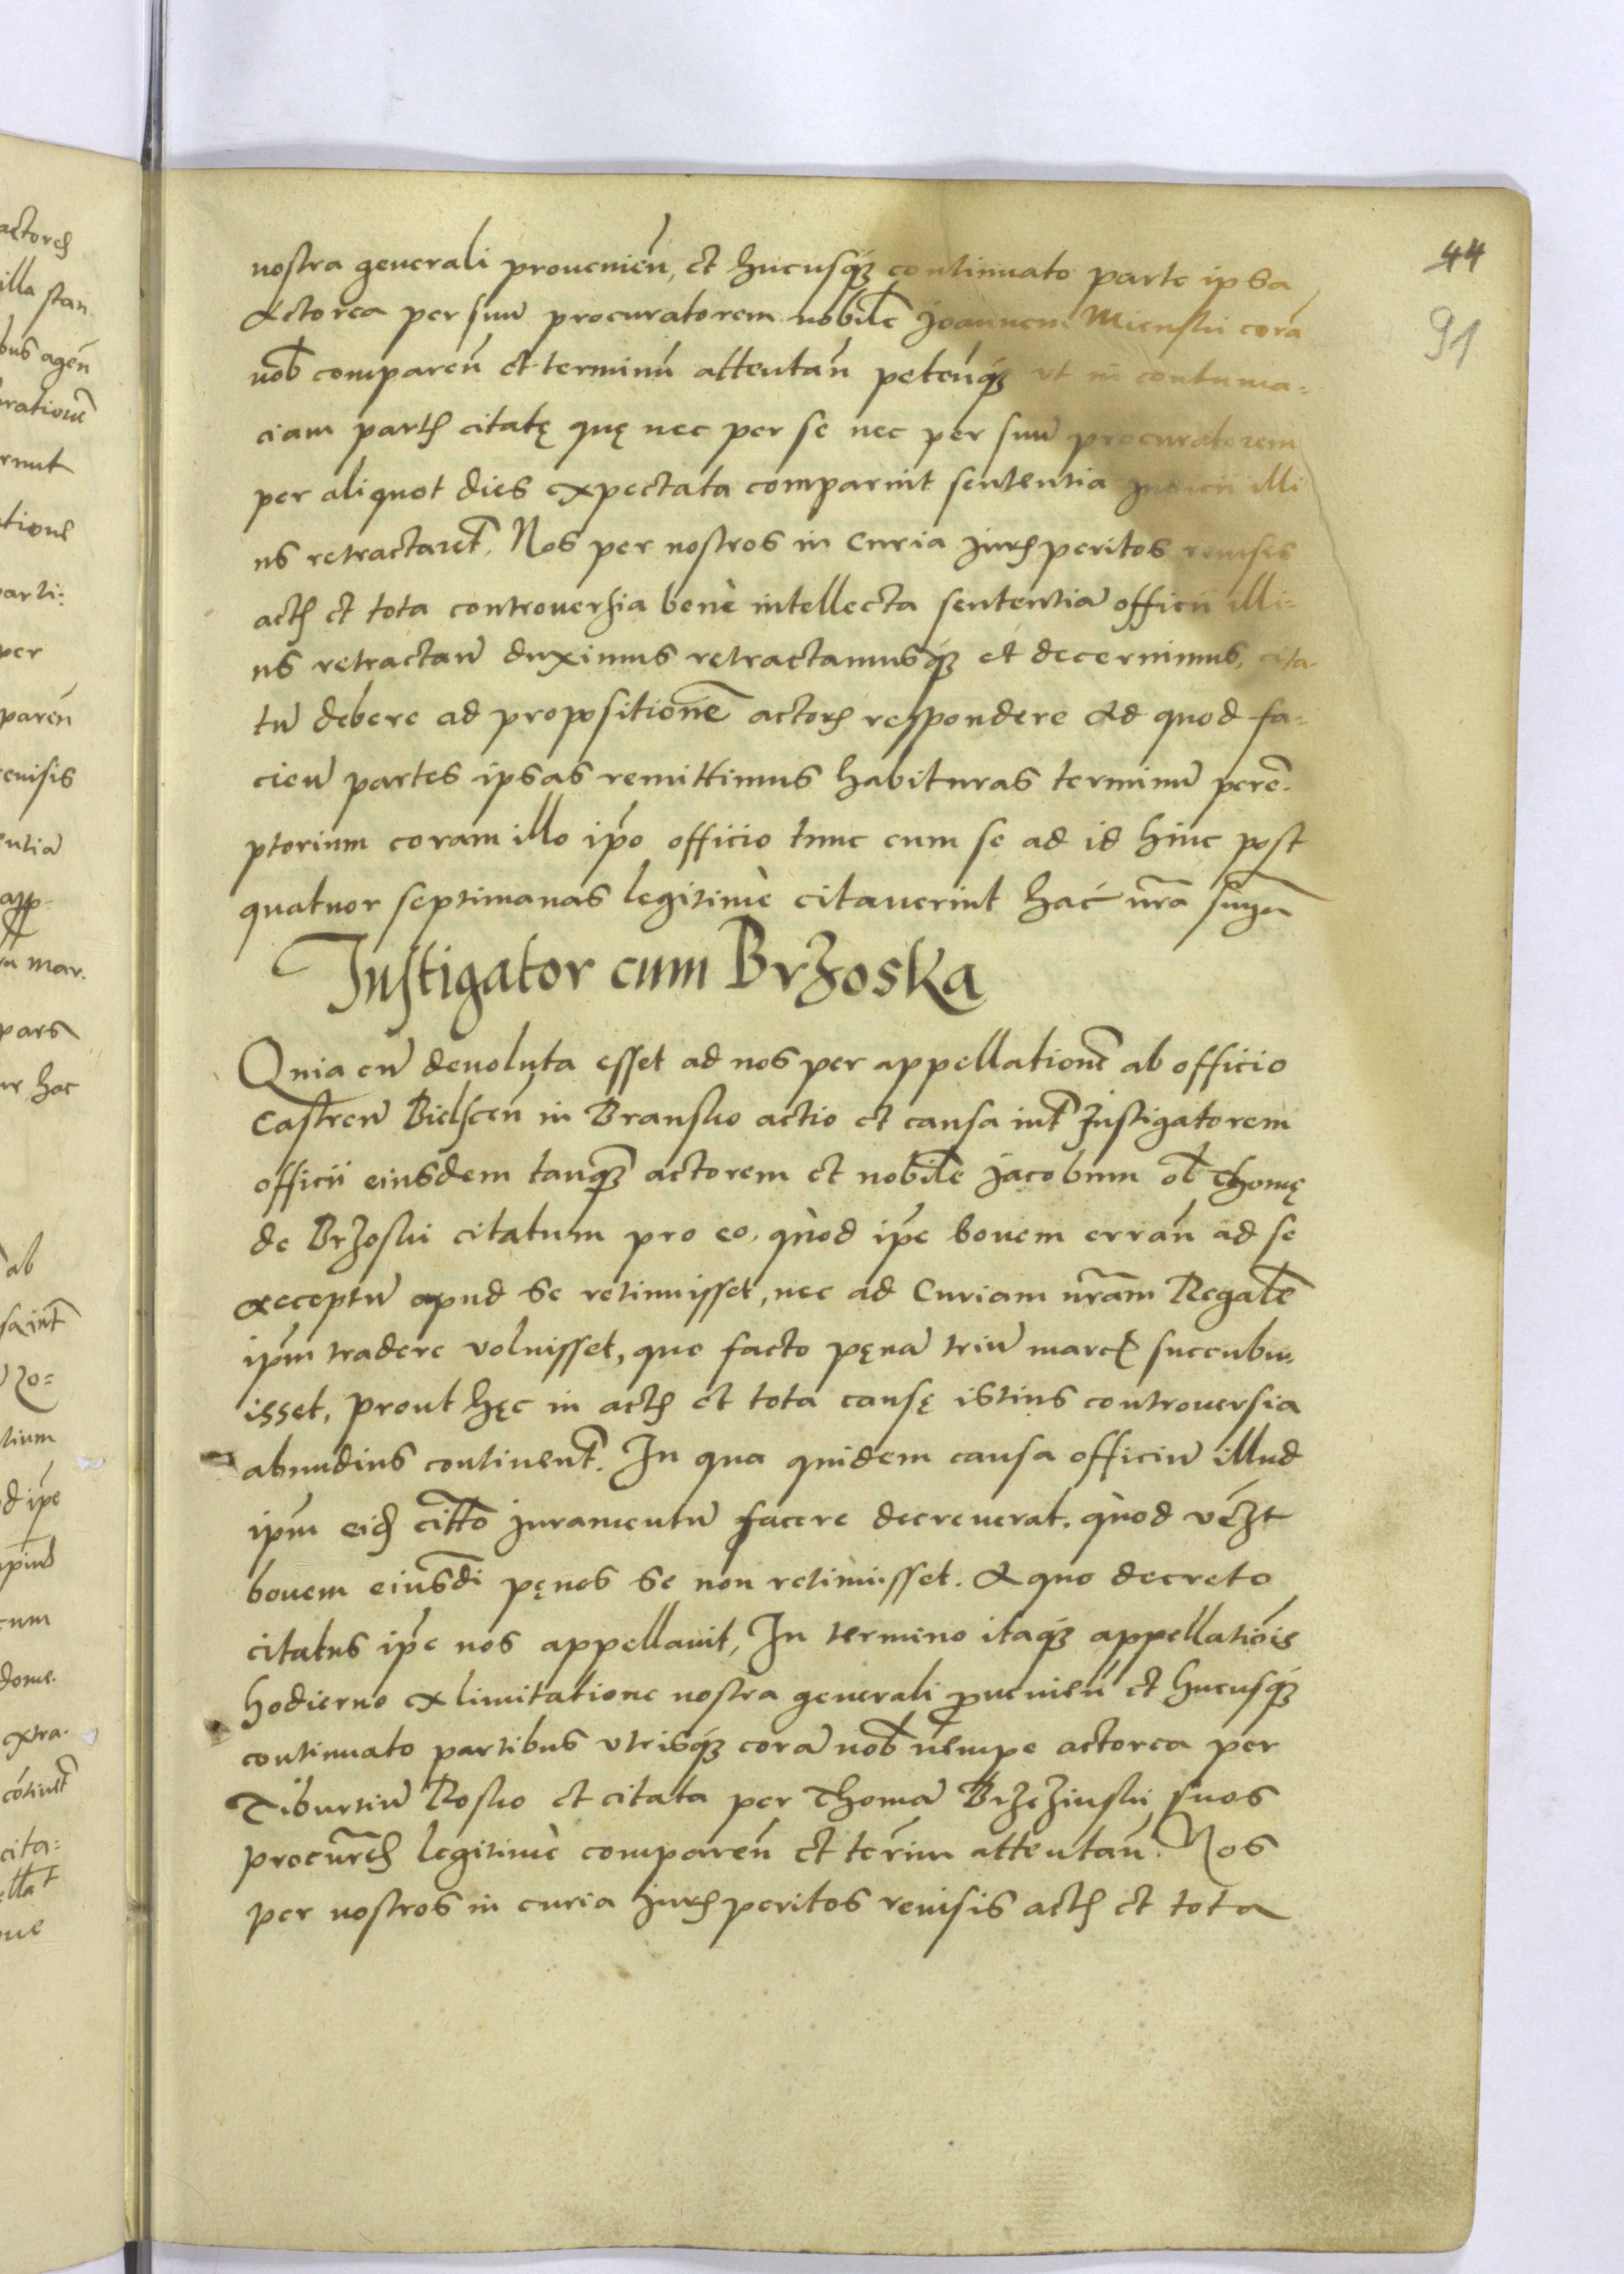 44
91
nostra generali prouenień, et hucusq́ continuato parte ipsa
Actorea per suū procuratorem nobilē Joannem Mienski corā
nob̄ compareń et terminū attentań petenq́ ut in contuma=
ciam partis citatę quę nec per se nec per suū procuratorem
per aliquot dies expectata comparuit sententia Judicii illi
us retractaret̄. Nos per nostros in Curia Jurisperitos reuisis
actis et tota controuersia benè intellecta sententiā officii illi=
us retractanā duximus retractamusq́ et decernimus, cita-
tū debere ad propositionē actoris respondere Ad quod fa=
cienā partes ipsas remittimus habituras terminū perē-
ptorium coram illo ip̄o officio tunc cum se ad id hinc post
quatuor septimanas legitimè citauerint hac nr̄a snīa
Instigator cum Brzoska
Quia cū deuoluta esset ad nos per appellationē ab officio
Castreń Bielsceń in Bransko actio et causa int̄ Instigatorem
officii eiusdem tanq̄ actorem et nobilē Jacobum ol̄ Thomę
de Brzoski citatum pro eo, quod ip̄e bouem errań ad se
acceptū apud se retinuisset, nec ad Curiam nr̄am Regalē
ip̄m tradere voluisset, quo facto pęnā triū marcʒ succubu-
isset, prout hęc in actis et tota causę istius controuersia
abundius continent̄. In qua quidem causa officiū illud
ip̄m eid̄ citt̄o Juramentū facere decreuerat, quòd vēzt
bouem eiusdi pęnes se non retinuisset. A quo decreto
citatus ip̄e nos appellauit, In termino itaq́ appellatiōis
hodierno ex limitatione nostra generali ꝓuenień et hucusq́
continuato partibus vtrisq́ corā nob̄ nempe actorea per
Tiburtiū Rosko et citata per Thomā Brzezinski suos
procur̄es legitimè compareń et ter̄im attentań. Nos
per nostros in curia Jurisperitos reuisis actis et tota